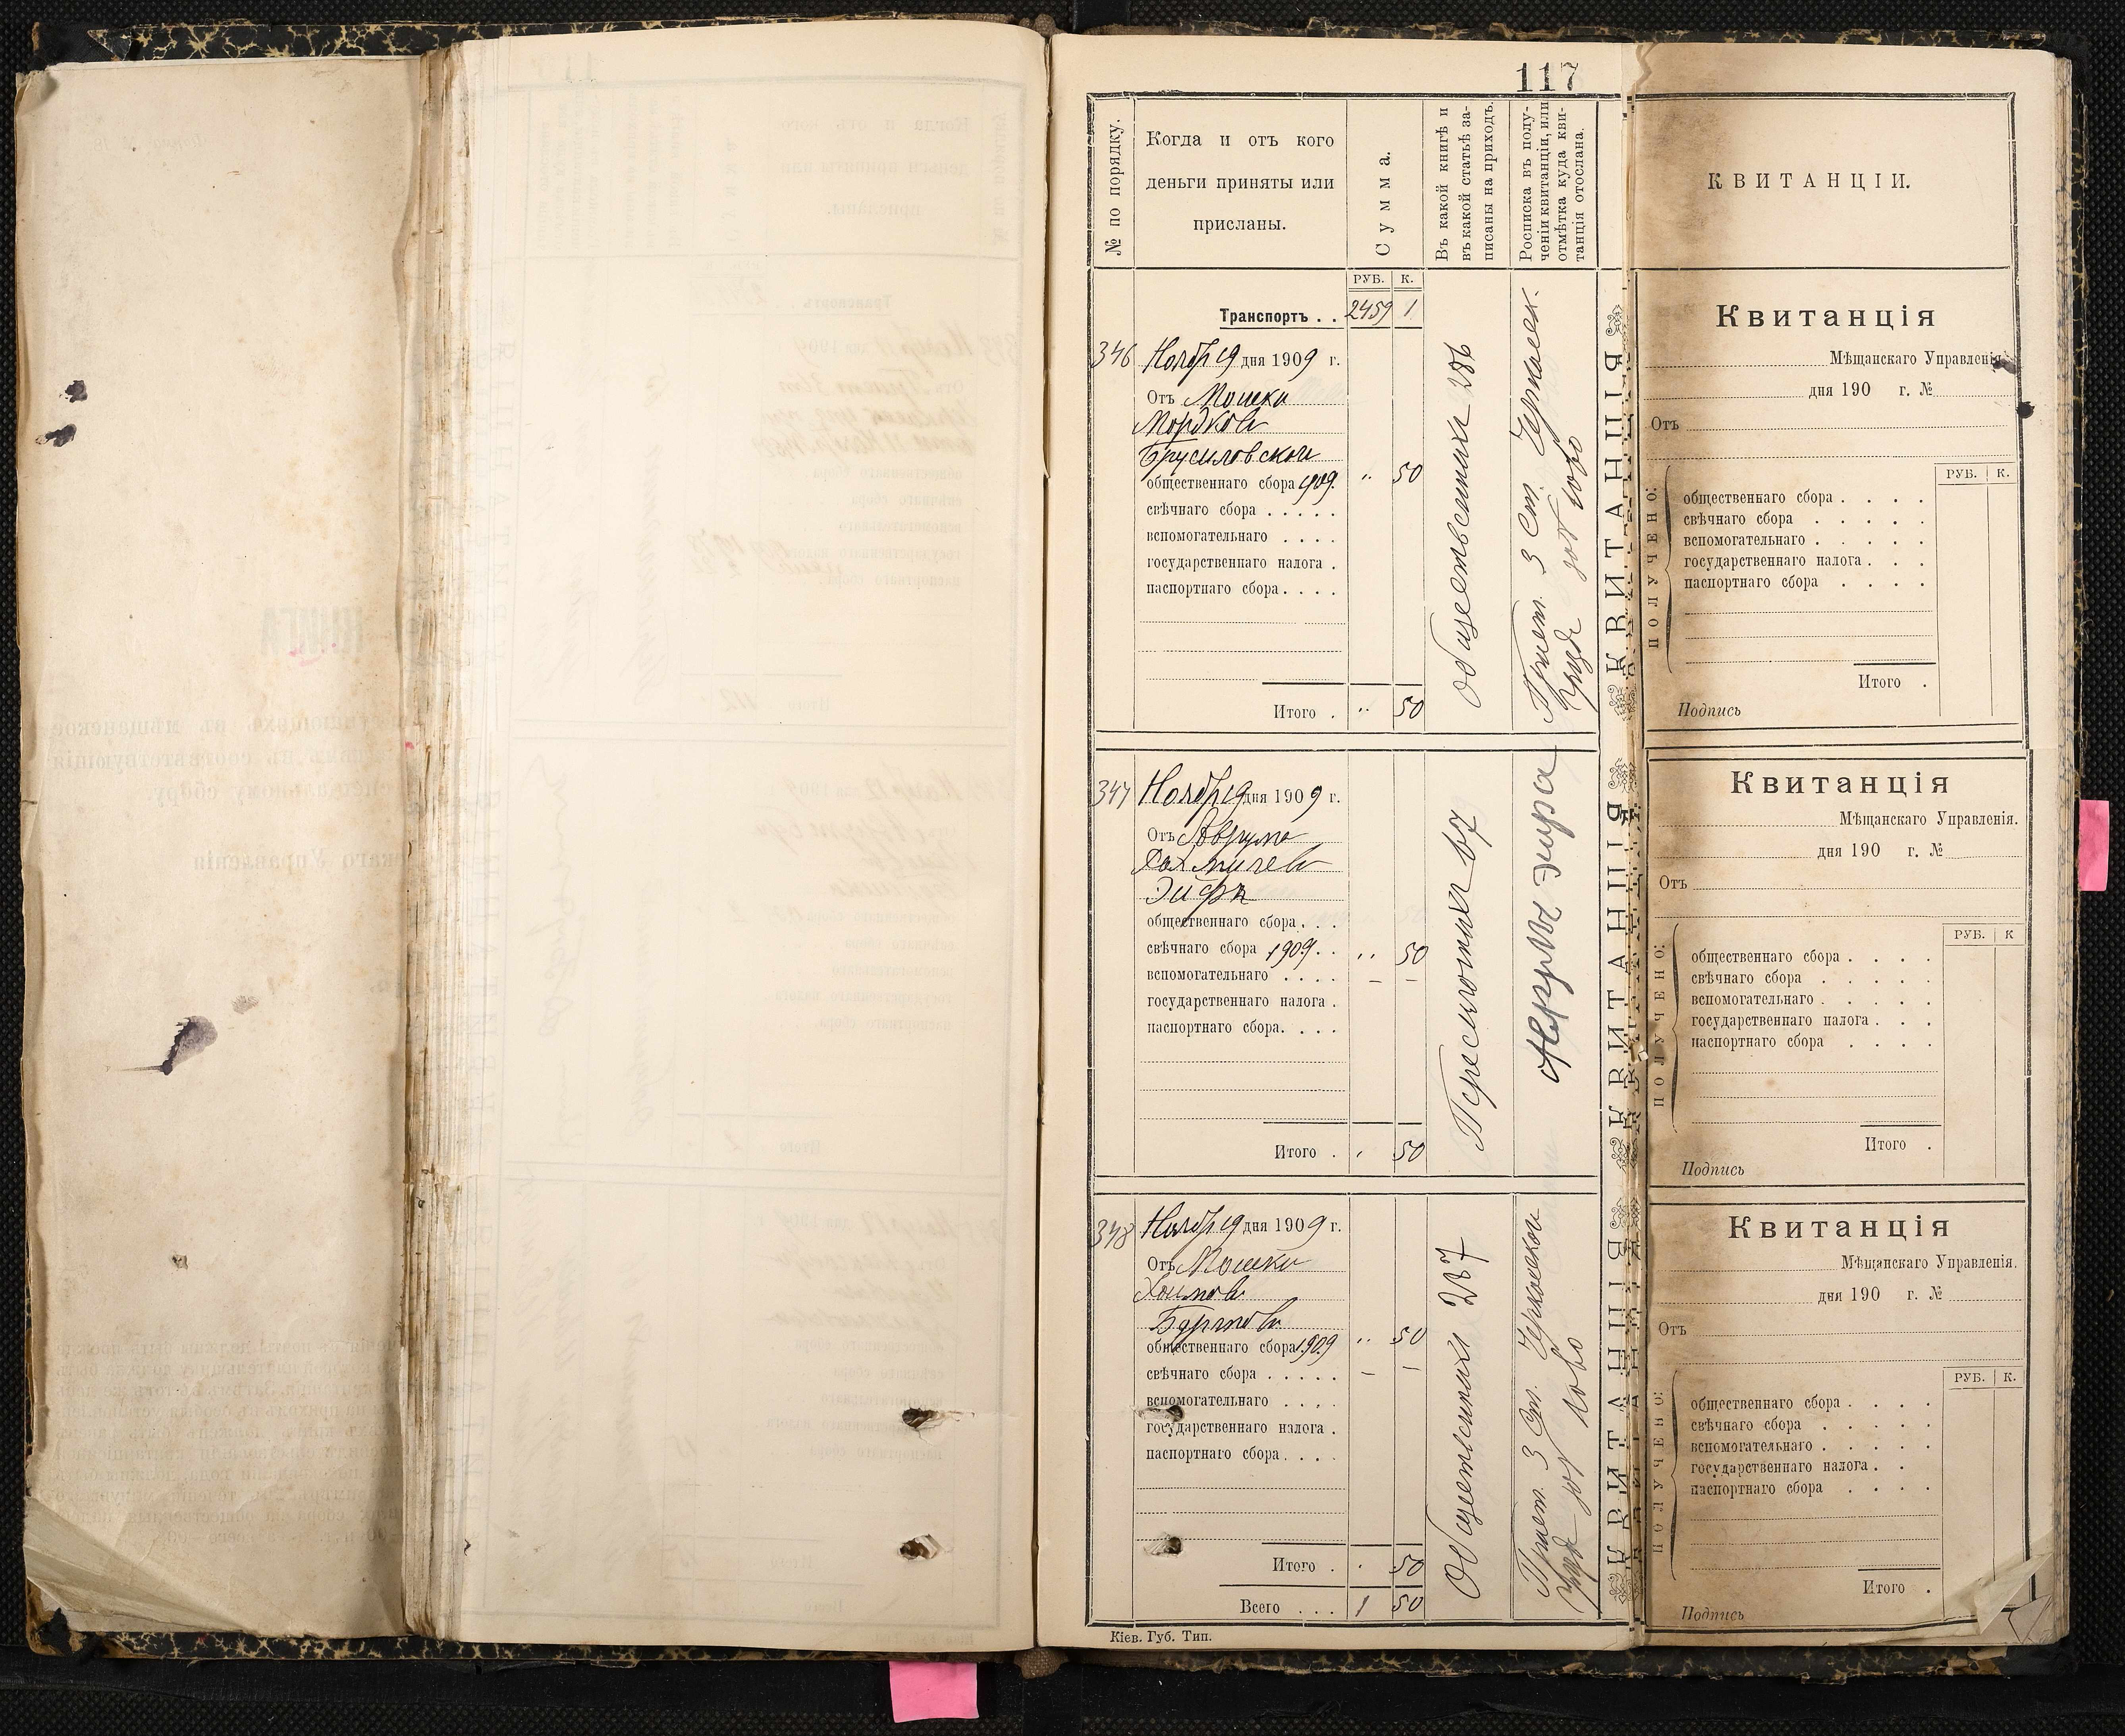 117
№ по порядку.
Когда и отъ кого
деньги приняты или
присланы.
Сумма.
Въ какой книгѣ и
въ какой статьѣ за-
писаны на приходъ.
Росписка въ полу-
ченіи квитанціи, или
отмѣтка куда кви-
танція отослана.
РУБ. К.
Транспортъ . . 2459 1
346 Ноябр 19 дня 1909 г.
Отъ Мошки
Мордков
Брусиловской
общественнаго сбора 909. " 50
свѣчнаго сбора . . . . .
вспомогательнаго . . . .
государственнаго налога .
паспортнаго сбора . . . .
Итого . " 50
Общественная 286
Прист. 3 Ст. Черкасск.
347 Ноябр 19 дня 1909 г.
Отъ Аврума
Эйфра
общественнаго сбора . . .
свѣчнаго сбора 1909 . . " 50
вспомогательнаго . . . . – –
государственнаго налога .
паспортнаго сбора. . . .
Итого . " 50
67
348 Ноябр 19 дня 1909 г.
Отъ Мошки
Хаимов
общественнаго сбора 1909 " 50
свѣчнаго сбора . . . . . – –
вспомогательнаго . . . .
государственнаго налога .
паспортнаго сбора . . . .
Итого . " 50
Всего . . . 1 50
Общественная 287
Прист. 3 Ст. Черкасской
Кіев. Губ. Тип.
КВИТАНЦІЯ
КВИТАНЦІЯ
КВИТАНЦІЯ
КВИТАНЦІИ.
Квитанція
Мѣщанскаго Управленія
дня 190 г. №
Отъ
РУБ. К.
ПОЛУЧЕНО:
общественнаго сбора . . . .
свѣчнаго сбора . . . . .
вспомогательнаго . . . . .
государственнаго налога . . .
паспортнаго сбора . . . .
Итого .
Подпись
Квитанція
Мѣщанскаго Управленія.
дня 190 г. №
Отъ
РУБ. К
ПОЛУЧЕНО:
общественнаго сбора . . . .
свѣчнаго сбора . . . . .
вспомогательнаго . . . . .
государственнаго налога . . .
паспортнаго сбора . . . .
Итого .
Подпись
Квитанція
Мѣщанскаго Управленія.
дня 190 г. №
Отъ
РУБ. К.
ПОЛУЧЕНО:
общественнаго сбора . . . .
свѣчнаго сбора . . . . .
вспомогательнаго . . . . .
государственнаго налога . .
паспортнаго сбора . . . .
Итого .
Подпись